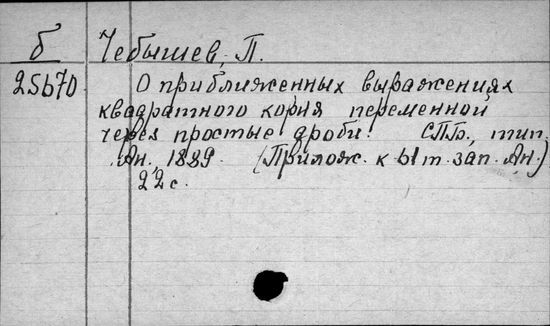 б Чебышев, П.
25670 О приближенных выражениях
квадратного корня переменной
через простые дроби. СПБ., тип.
Ан. 1889 (Прилож. к 61 т. зап. Ан.)
22 с.